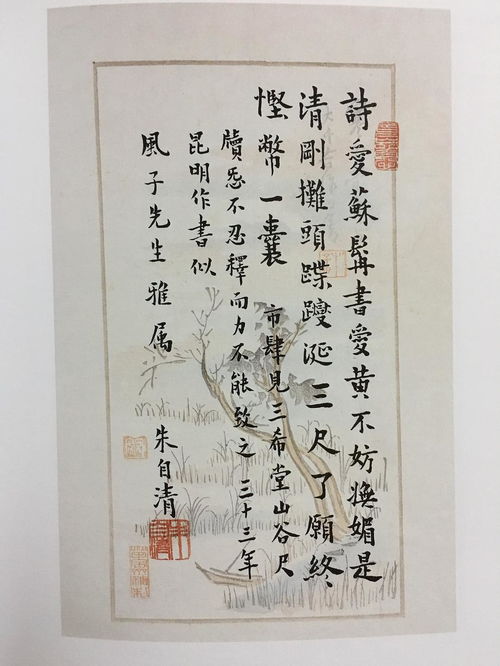 詩愛蘇髯書愛黃不妨媚是
清剛攤頭蹀躞涎三尺了願終
慳幣一囊 市肆見三希堂山谷尺
牘㤅不忍釋而力不能致之 三十三年
昆明作書似
風子先生雅属
朱自清